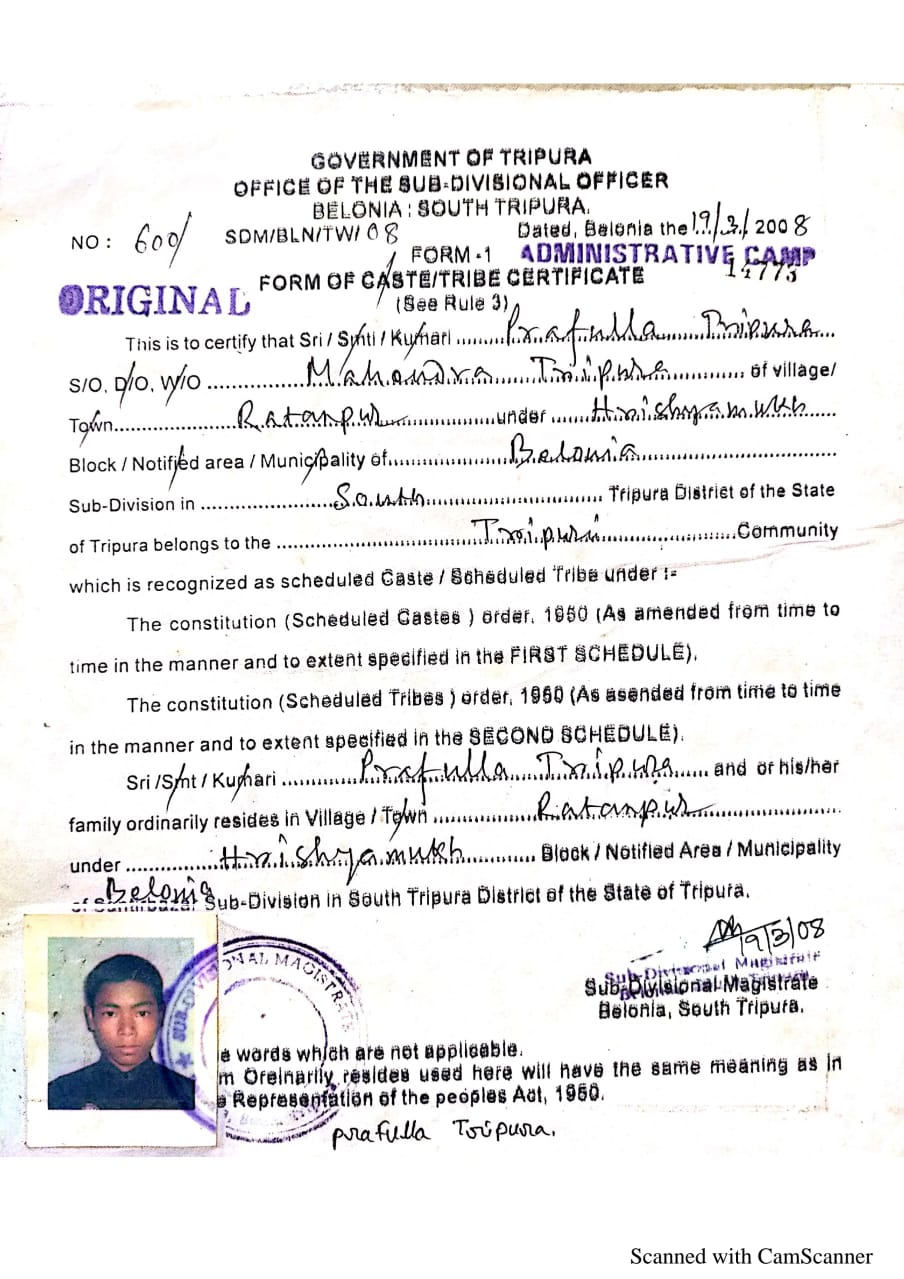 GOVERNMENT OF TRIPURA
OFFICE OF THE SUB-DIVISIONAL OFFICER
BELONIA : SOUTH TRIPURA.
NO : 600/ SDM/BLN/TW/ 08 Dated, Belonia the 19/3/2008
FORM -1 ADMINISTRATIVE CAMP
ORIGINAL FORM OF CASTE/TRIBE CERTIFICATE
(See Rule 3)
This is to certify that Sri / Smti / Kumari ........ Prafulla ...... Tripura...
S/O, D/O, W/O ............... Mahendra ...... Tripura ............ of village/
Town..................... Ratanpur ...............under ...... Hrishyamukh......
Block / Notified area / Municipality of..................... Belonia.................................
Sub-Division in ..................... South............................... Tripura District of the State
of Tripura belongs to the .................................. Tripuri.......................Community
which is recognized as scheduled Caste / Scheduled Tribe under :-
The constitution (Scheduled Castes ) order, 1950 (As amended from time to
time in the manner and to extent specified in the FIRST SCHEDULE).
The constitution (Scheduled Tribes ) order, 1950 (As asended from time to time
in the manner and to extent specified in the SECOND SCHEDULE).
Sri /Smt / Kumari ............. Prafulla ..... Tripura ...... and or his/her
family ordinarily resides in Village / Town ................. Ratanpur.....................
under ............... Hrishyamukh ............ Block / Notified Area / Municipality
Belonia Sub-Division in South Tripura District of the State of Tripura.
19/3/08
Sub-Divisional Magistrate
Sub-Divisional Magistrate
Belonia, South Tripura.
SUB-DIVISIONAL MAGISTRATE
e words which are not applicable.
m Oreinarily resides used here will have the same meaning as in
e Representation of the peoples Act, 1950.
prafulla Tripura.
Scanned with CamScanner